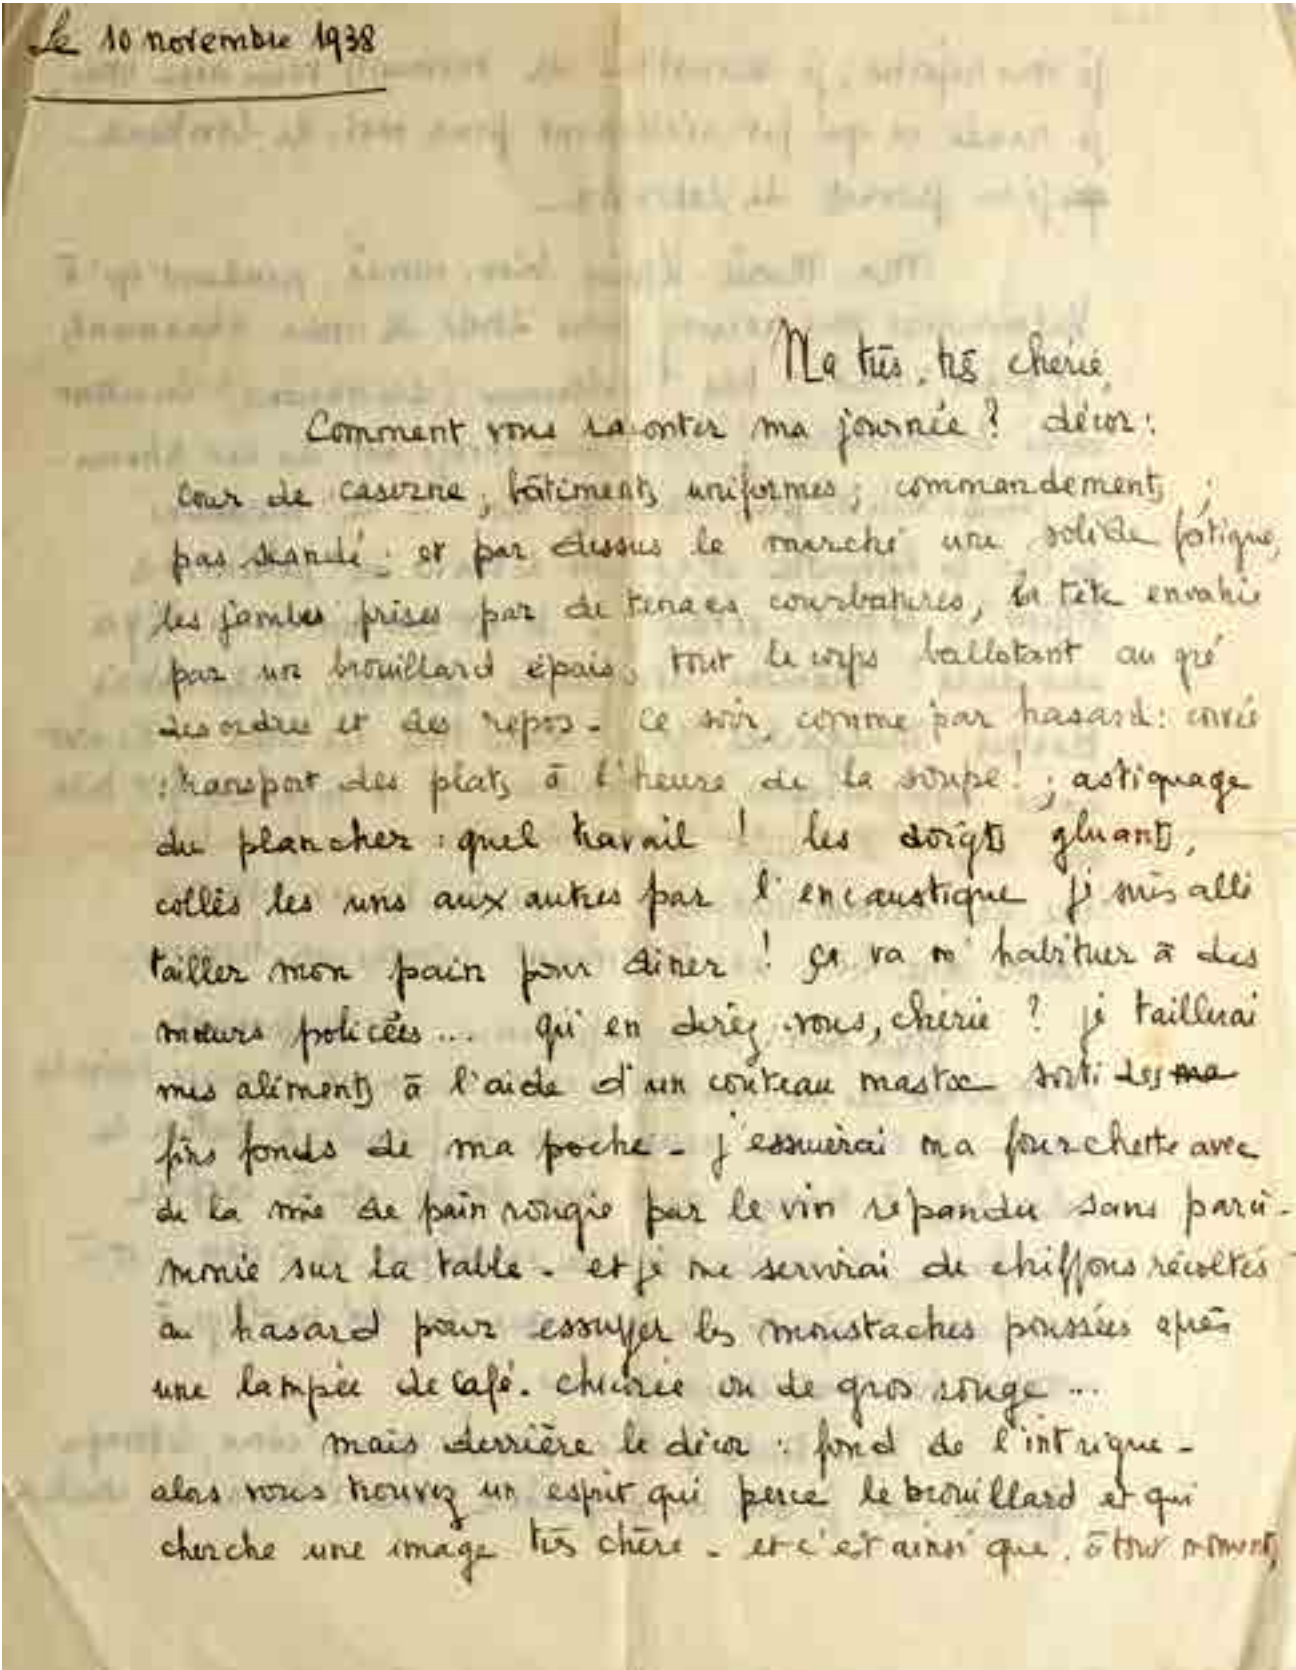 Le 10 novembre 1938
Ma très, très chérie,
Comment vous raconter ma journée ? décor :
cour de caserne, bâtiments uniformes ; commandements ;
pas scandé ; et par dessus le marché une solide fatigue,
les jambes prises par de tenaces courbatures, la tête envahie
par un brouillard épais, tout le corps ballotant au gré
des ordres et des repos - Ce soir, comme par hasard : corvée
: transport des plats à l'heure de la soupe ! ; astiquage
du plancher : quel travail ! les doigts gluants,
collés les uns aux autres par l'encaustique je suis allé
tailler mon pain pour dîner ! ça va m'habituer à des
mœurs policées ... qu'en direz-vous, chérie ? je taillerai
mes aliments à l'aide d'un couteau mastoc sorti des ma
fins fonds de ma poche - j'essuierai ma fourchette avec
de la mie de pain rougie par le vin répandu sans parci-
monie sur la table - et je me servirai de chiffons récoltés
au hasard pour essuyer les moustaches poussées après
une lampée de café-chicorée ou de gros rouge ...
mais derrière le décor : fond de l'intrigue -
alors vous trouvez un esprit qui perce le brouillard et qui
cherche une image très chère - et c'est ainsi que, à tous moments,